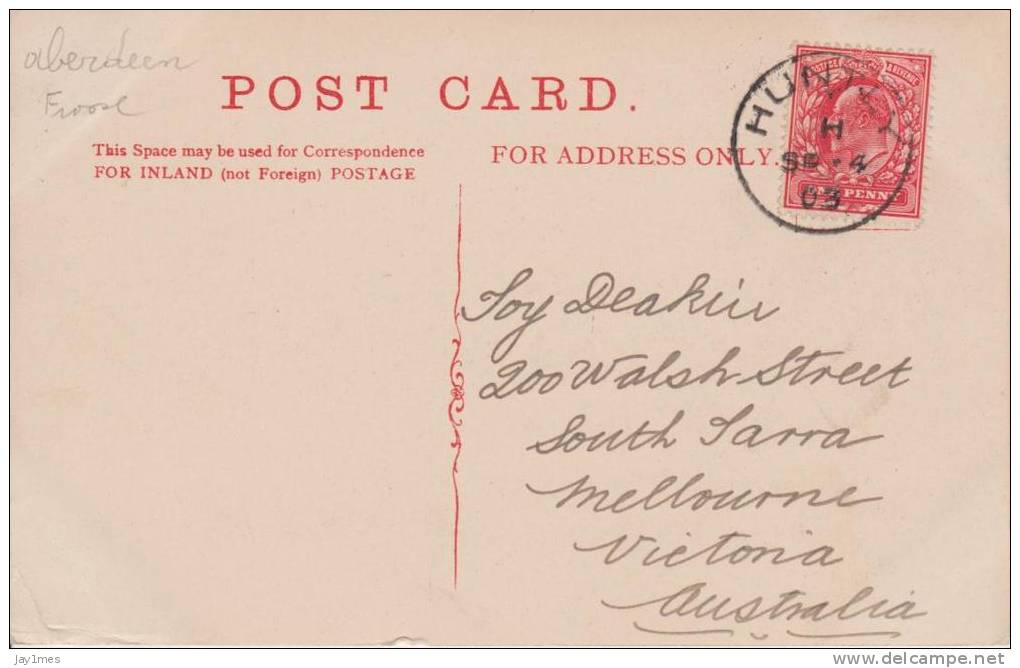 aberdeen
POST CARD.
This Space may be used for Correspondence
FOR INLAND (not Foreign) POSTAGE
FOR ADDRESS ONLY.
HUNTLY
H
SE 4
03
POSTAGE & REVENUE
ONE PENNY
Joy Deakin
200 Walsh Street
South Yarra
Melbourne
Victoria
Australia
jay1mes
delcampe.net